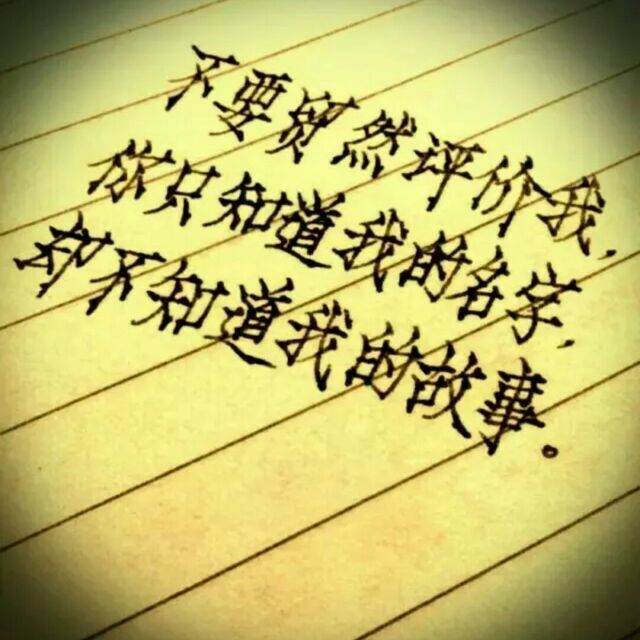 不要贸然评价我，
你只知道我的名字，
却不知道我的故事。